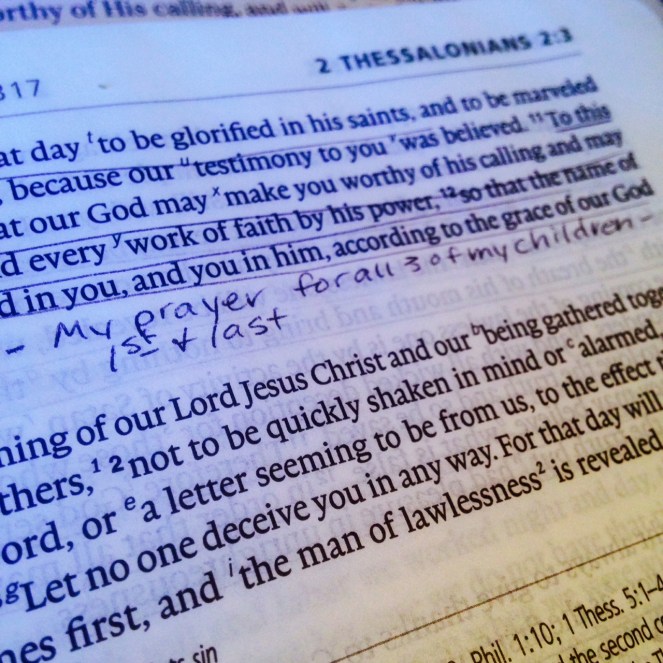 orthy of His calling, and
2 THESSALONIANS 2:3
317
at day ᵗto be glorified in his saints, and to be marveled
, because our ᵘtestimony to you ᵛwas believed. ¹¹To this
at our God may ˣmake you worthy of his calling and may
d every ʸwork of faith by his power, ¹²so that the name of
d in you, and you in him, according to the grace of our God
- My prayer for all 3 of my children -
1st & last
ning of our Lord Jesus Christ and our ᵇbeing gathered toge
thers,¹ 2not to be quickly shaken in mind or ᶜalarmed,
ord, or ᵉa letter seeming to be from us, to the effect
ᵍLet no one deceive you in any way. For that day will
nes first, and ⁱthe man of lawlessness² is revealed
sin
Phil. 1:10; 1 Thess. 5:1–4
the second co